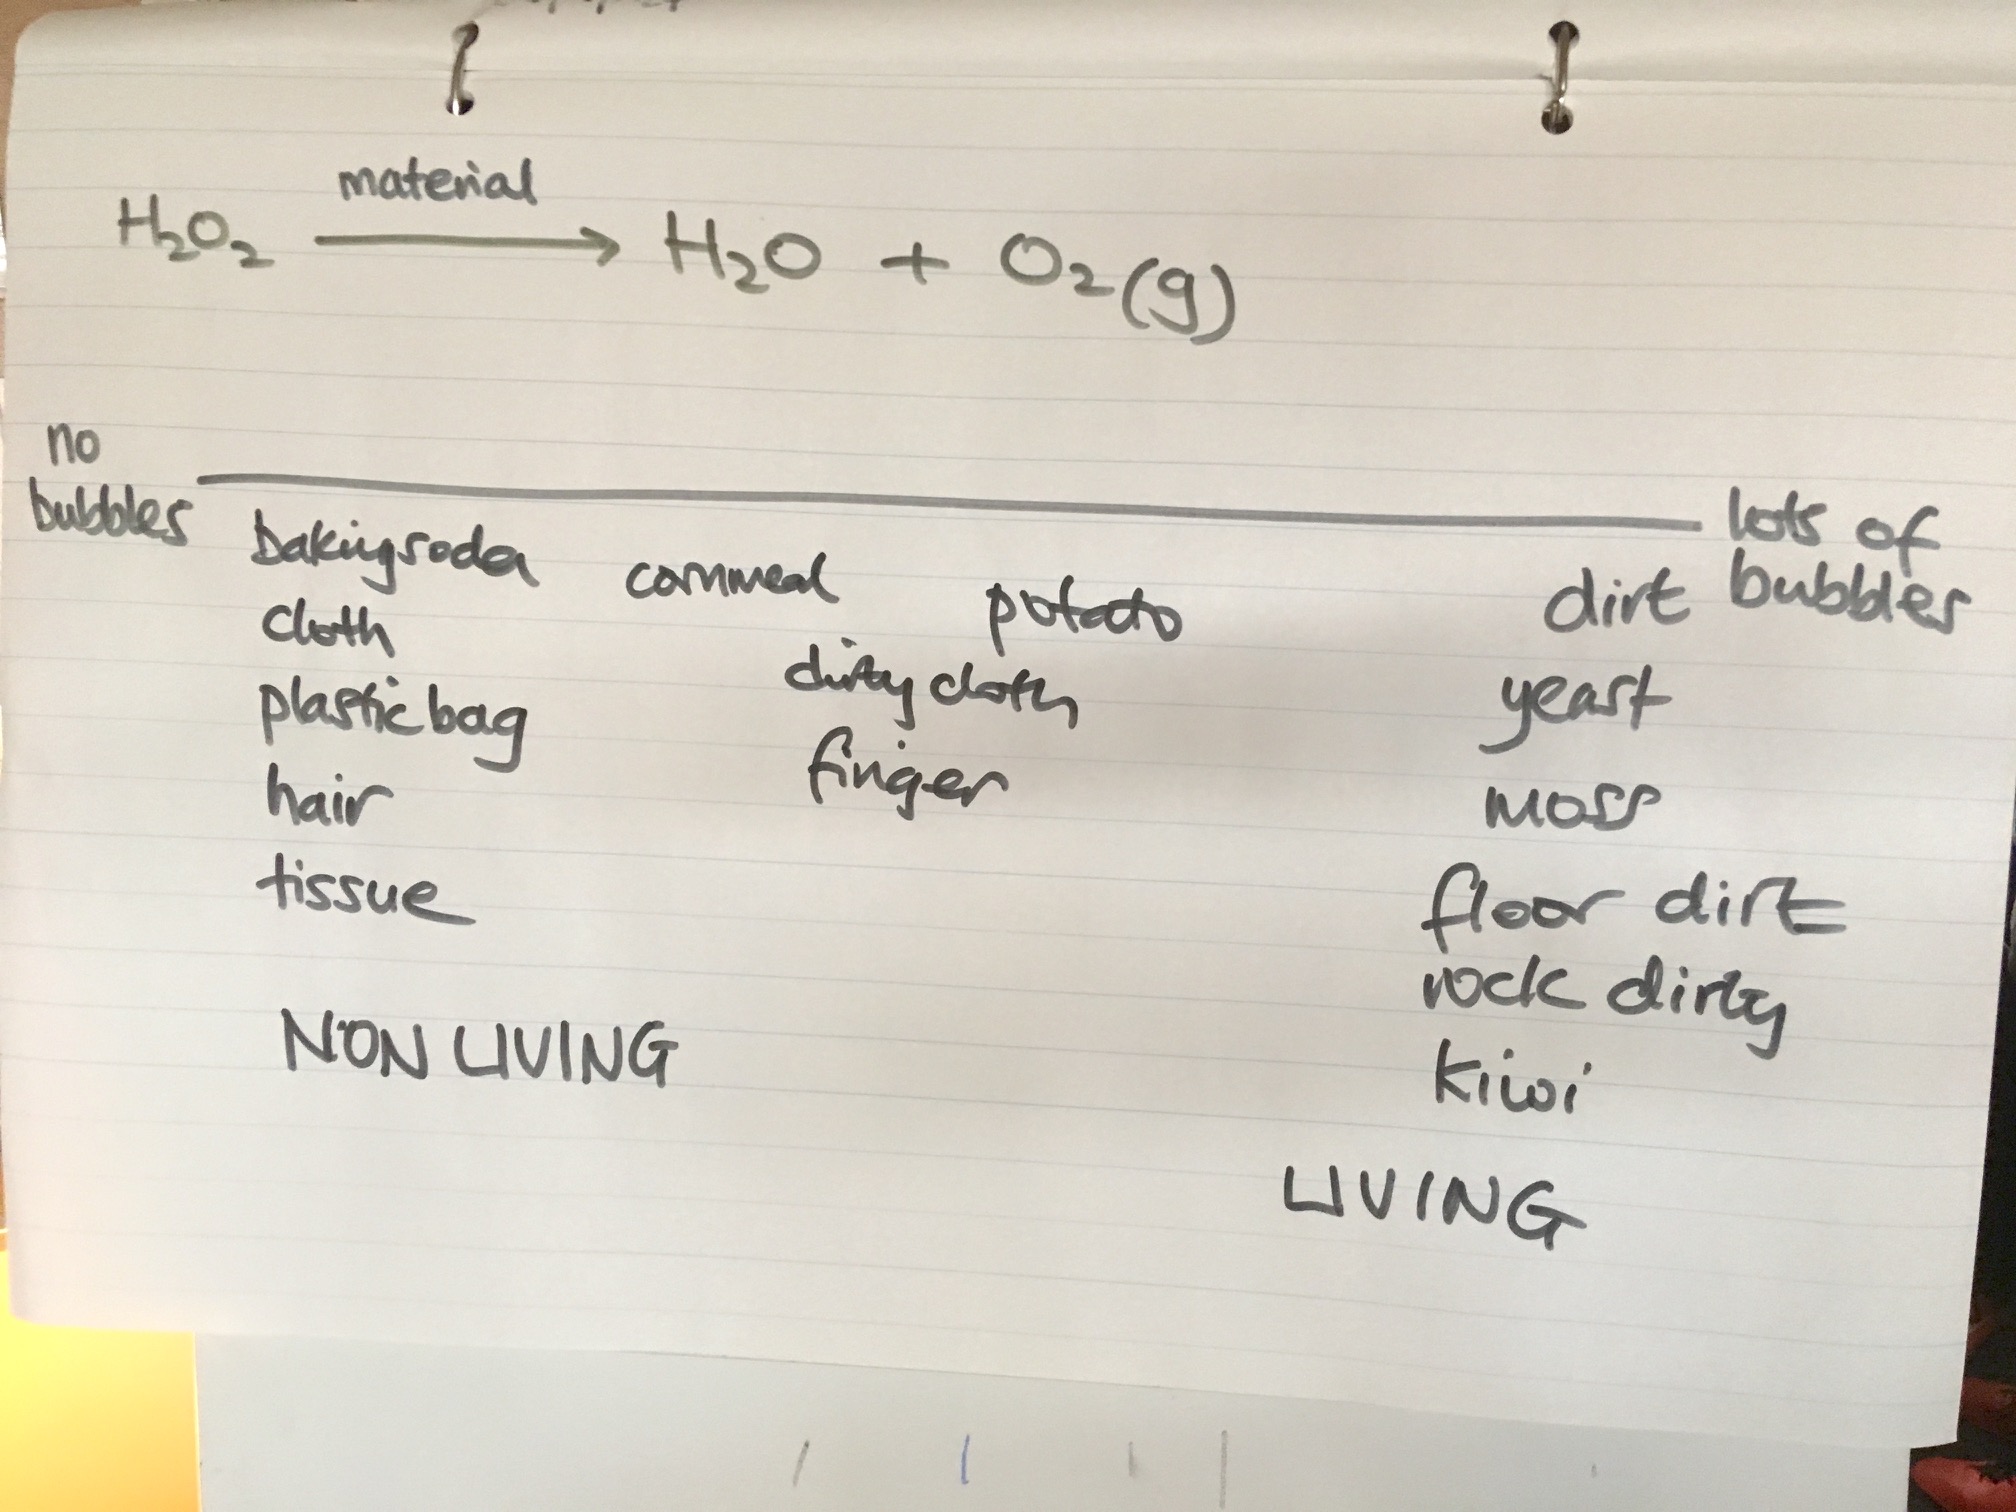 material
H₂O₂ → H₂O + O₂(g)
no
bubbles
lots of
bubbles
baking soda cornmeal potato dirt
cloth dirty cloth yeast
plastic bag finger moss
hair floor dirt
tissue rock dirty
NON LIVING kiwi
LIVING